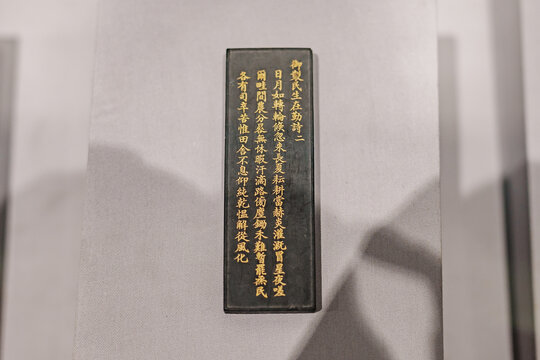 御製民生在勤詩二
日月如轉輪倏忽来長夏耘耕當赫炎灌溉冒星夜嗟
爾畦間農分晷無休暇汗滴路傍塵鋤禾難暫罷無民
各有司辛苦惟田舍不息仰純乾愠解從風化